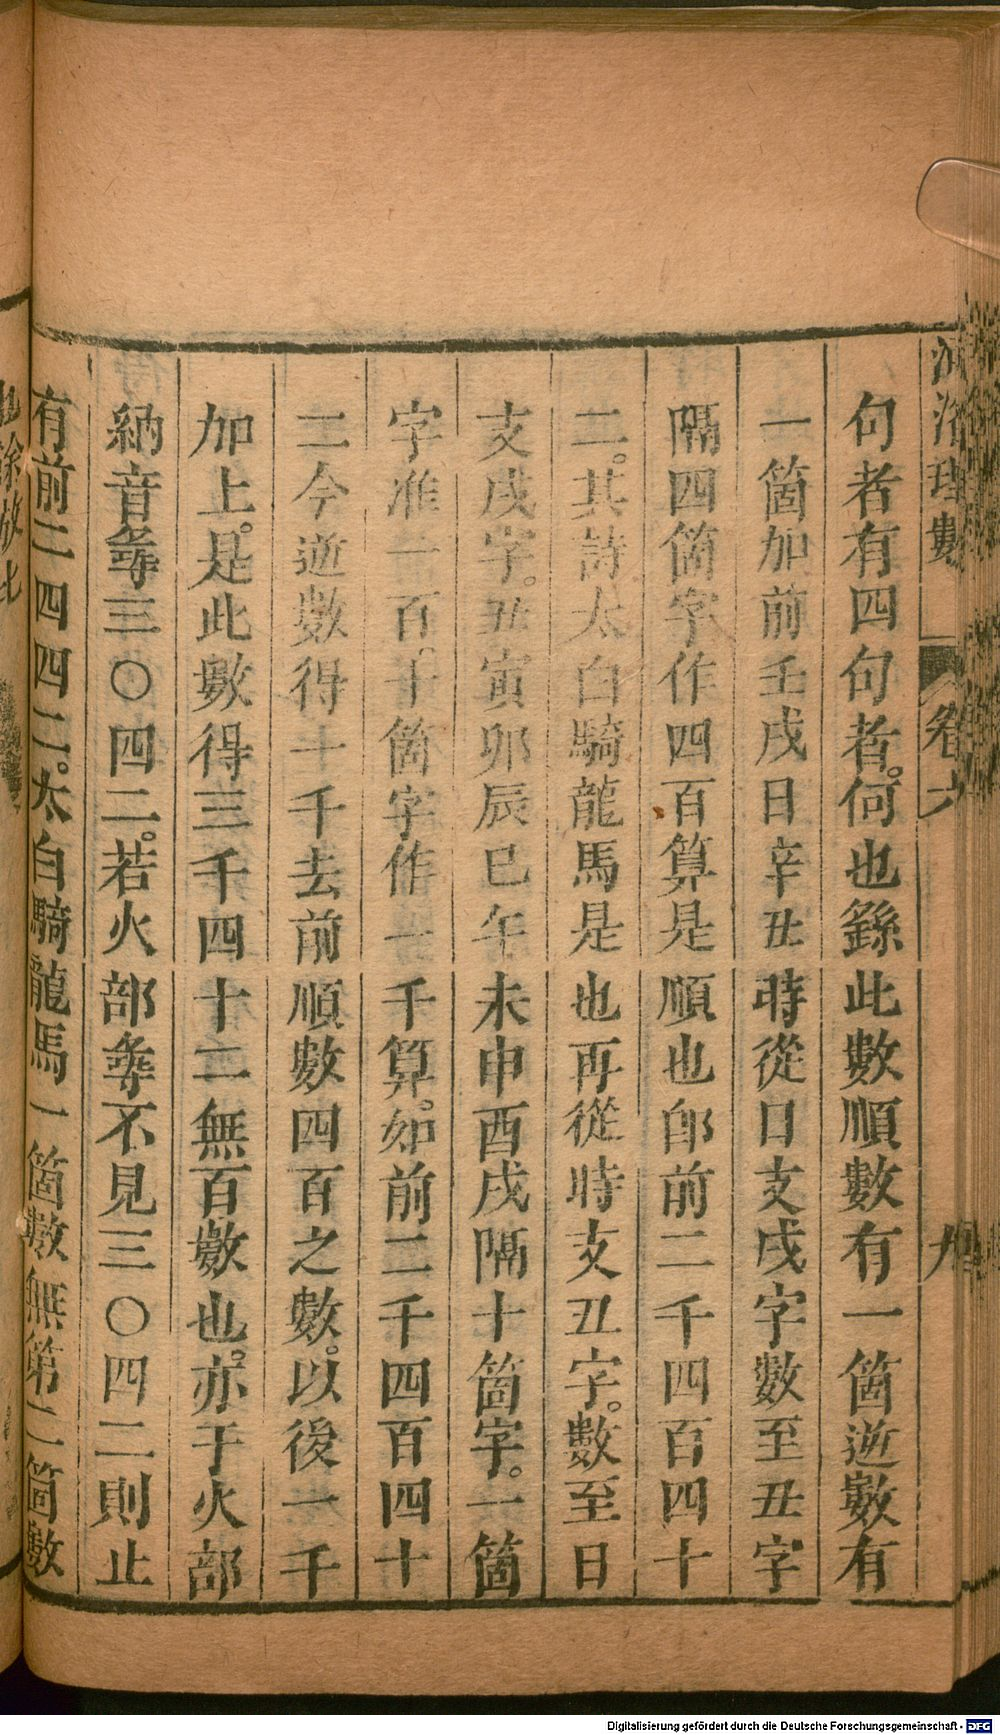 河洛理數 卷六 九
句者有四句者。何也繇此數順數有一箇逆數有
一箇加前壬戌日辛丑時從日支戌字數至丑字
隔四箇字作四百算是順也即前二千四百四十
二。其詩太白騎龍馬是也再從時支丑字。數至日
支戌字。丑寅卯辰巳午未申酉戌隔十箇字。一箇
字准一百。十箇字作一千算。如前二千四百四十
二今逆數得十千去前順數四百之數。以後一千
加上。是此數得三千四十二無百數也。亦于火部
納音𢭏三〇四二。若火部𢭏不見三〇四二則止
有前二四四二。太白騎龍馬一箇數無第二箇數
Digitalisierung gefördert durch die Deutsche Forschungsgemeinschaft - DFG